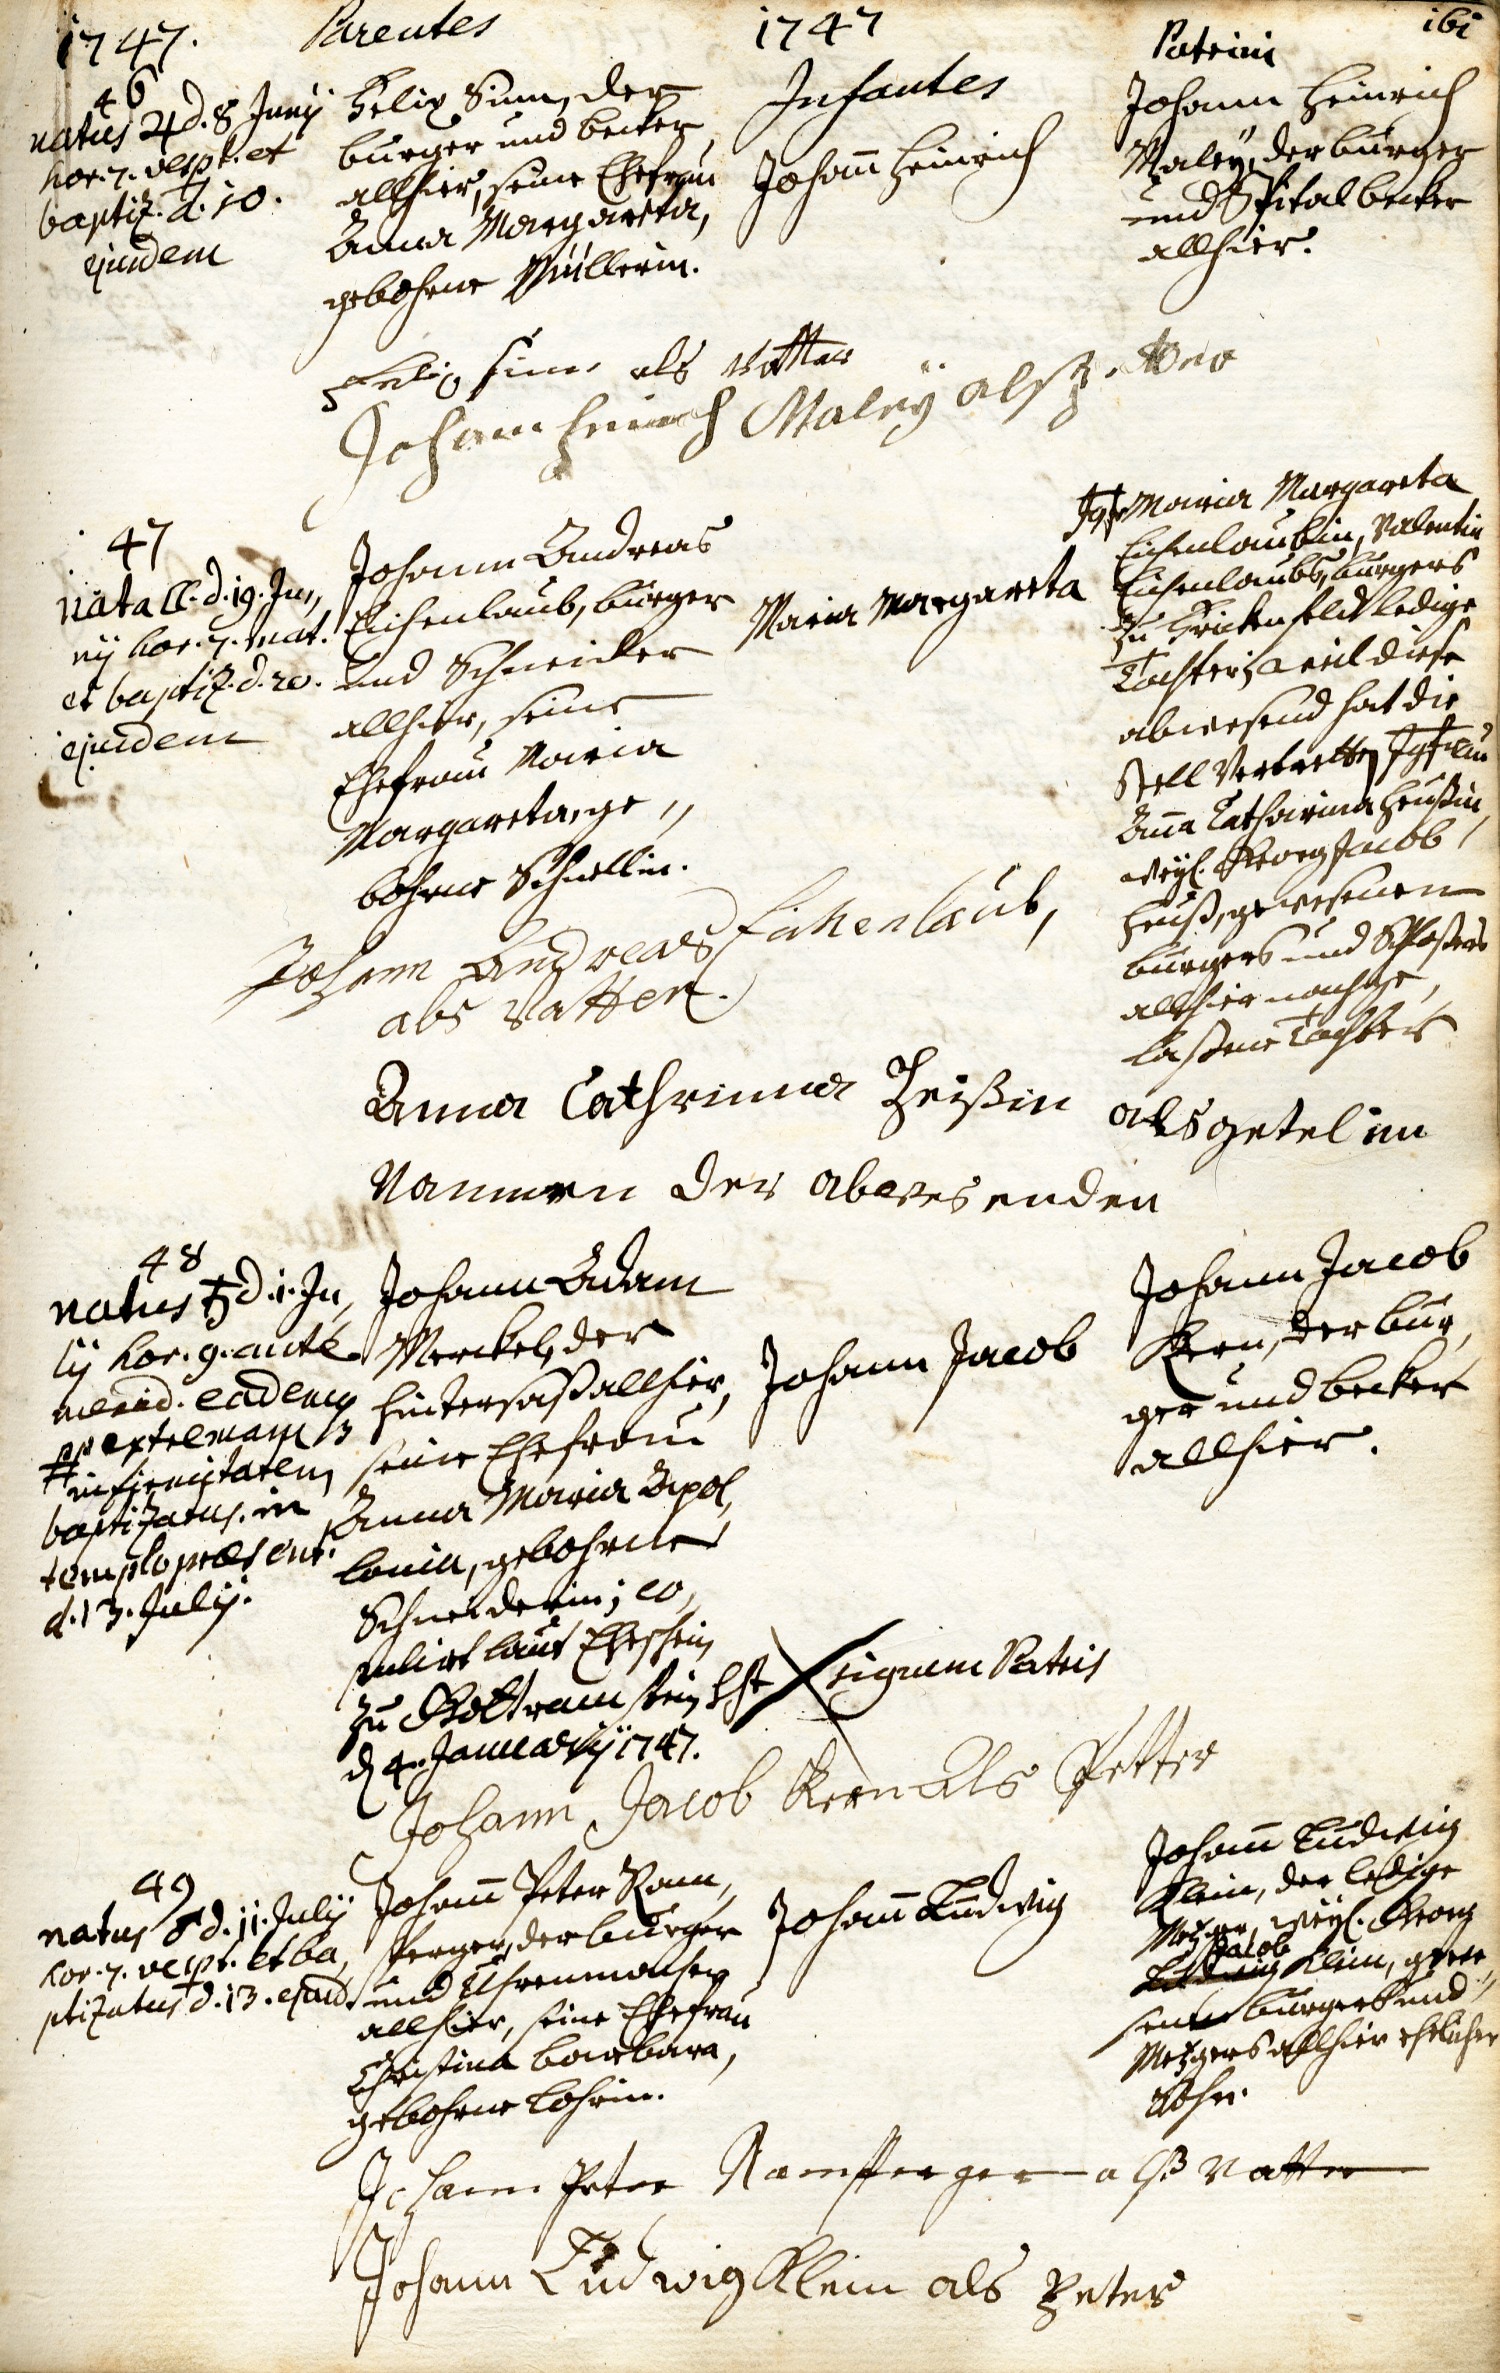 1747. Parentes 1747 Patrini 161
Infantes
46
natus ♃ d. 8 Junij
hor. 7. vesp. et
baptiz. d. 10.
ejusdem
Felix Simm, der
burger und becker
allhier, seine Ehefrau
Anna Margareta,
gebohrne Müllerin.
Johañ Heinrich
Johann Heinrich
Maleÿ, der burger
und Spitalbecker
allhier.
Felix Simm als Vatter
Johann Heinrich Maleÿ alß
47
nata d. 19. Ju„
nij hor. 7. mat.
et baptiz. d. 20.
ejusdem
Johann Andreas
Eichenlaub, burger
und Schneider
allhier, seine
Ehefrau Maria
Margareta, ge„
bohrne Schnellin.
Maria Margareta
Jgfr Maria Margareta
Eichenlaubin, Valentin
Eichenlaubs, burgers
zu Frickenfeld ledige
Tochter; weil diese
abwesend hat die
Stell vertretten Jgfrau
Aña Catharina Heußin,
weyl. Georg Jacob
Heuß, gewesenen
burgers und Schlossers
allhier nachge,
laßene Tochter
Johann Andreas Eichenlaub,
als Vatter.
Anna Cathrinna Heißin als getel im
Nammen der abwesenden
48
natus ♄ d. 1. Ju,
lij hor. 9. ante
merid. eadem
pp extremam
infirmitatem
baptizatus. in
templo præsent.
d. 13. Julij.
Johann Adam
Merckel, der
Hintersaß allhier,
seine Ehefrau
Anna Maria Apol,
lonia, gebohrne
Schneiderin; co,
pulirt laut Eheschein
zu Gottramstein
d 4. Januarij 1747.
Johann Jacob
Johann Jacob
Kern, der bur,
ger und becker
allhier.
signum Patris
Johann Jacob Kern Als Petter
49
natus ♂ d. 11. Julij
hor. 7. vesp. et ba,
ptizatus d. 13. ejusd.
Johañ Peter Ram,
sperger, der burger
und Uhrenmacher
allhier, seine Ehefrau
Christina barbara,
gebohrne Lohrin.
Johañ Ludwig
Johañ Ludwig
Klein, der ledige
Metzger, weyl. Georg
Jacob
Ludwig Klein, gewe„
senen burgers und
Metzgers allhier ehelicher
Sohn.
Johann Peter Ramsperger alß Vatter
Johann Ludwig Klein als Peter